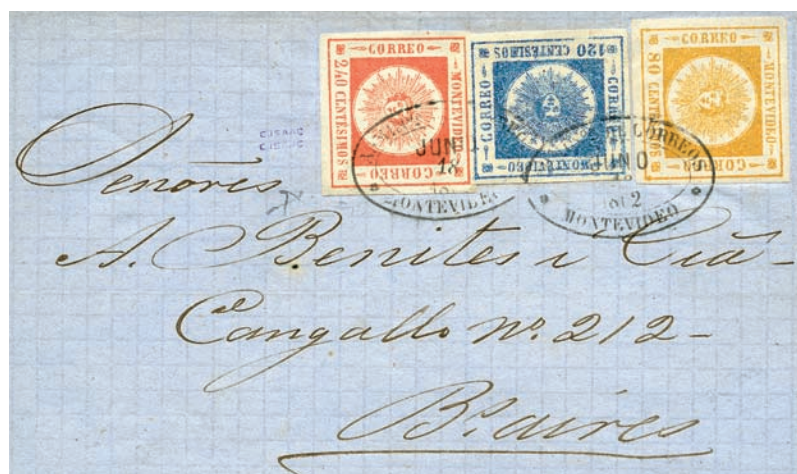 CORREO
240 CENTESIMOS
MONTEVIDEO
CORREO
120 CENTESIMOS
CORREO
CORREO
MONTEVIDEO
CORREO
80 CENTESIMOS
MONTEVIDEO
CORREO
JUN
18
MONTEVIDEO
CORREOS
JUN
MONTEVIDEO
Señores
A. Benites i Cia
Cangallo nº. 212-
Bs. aires